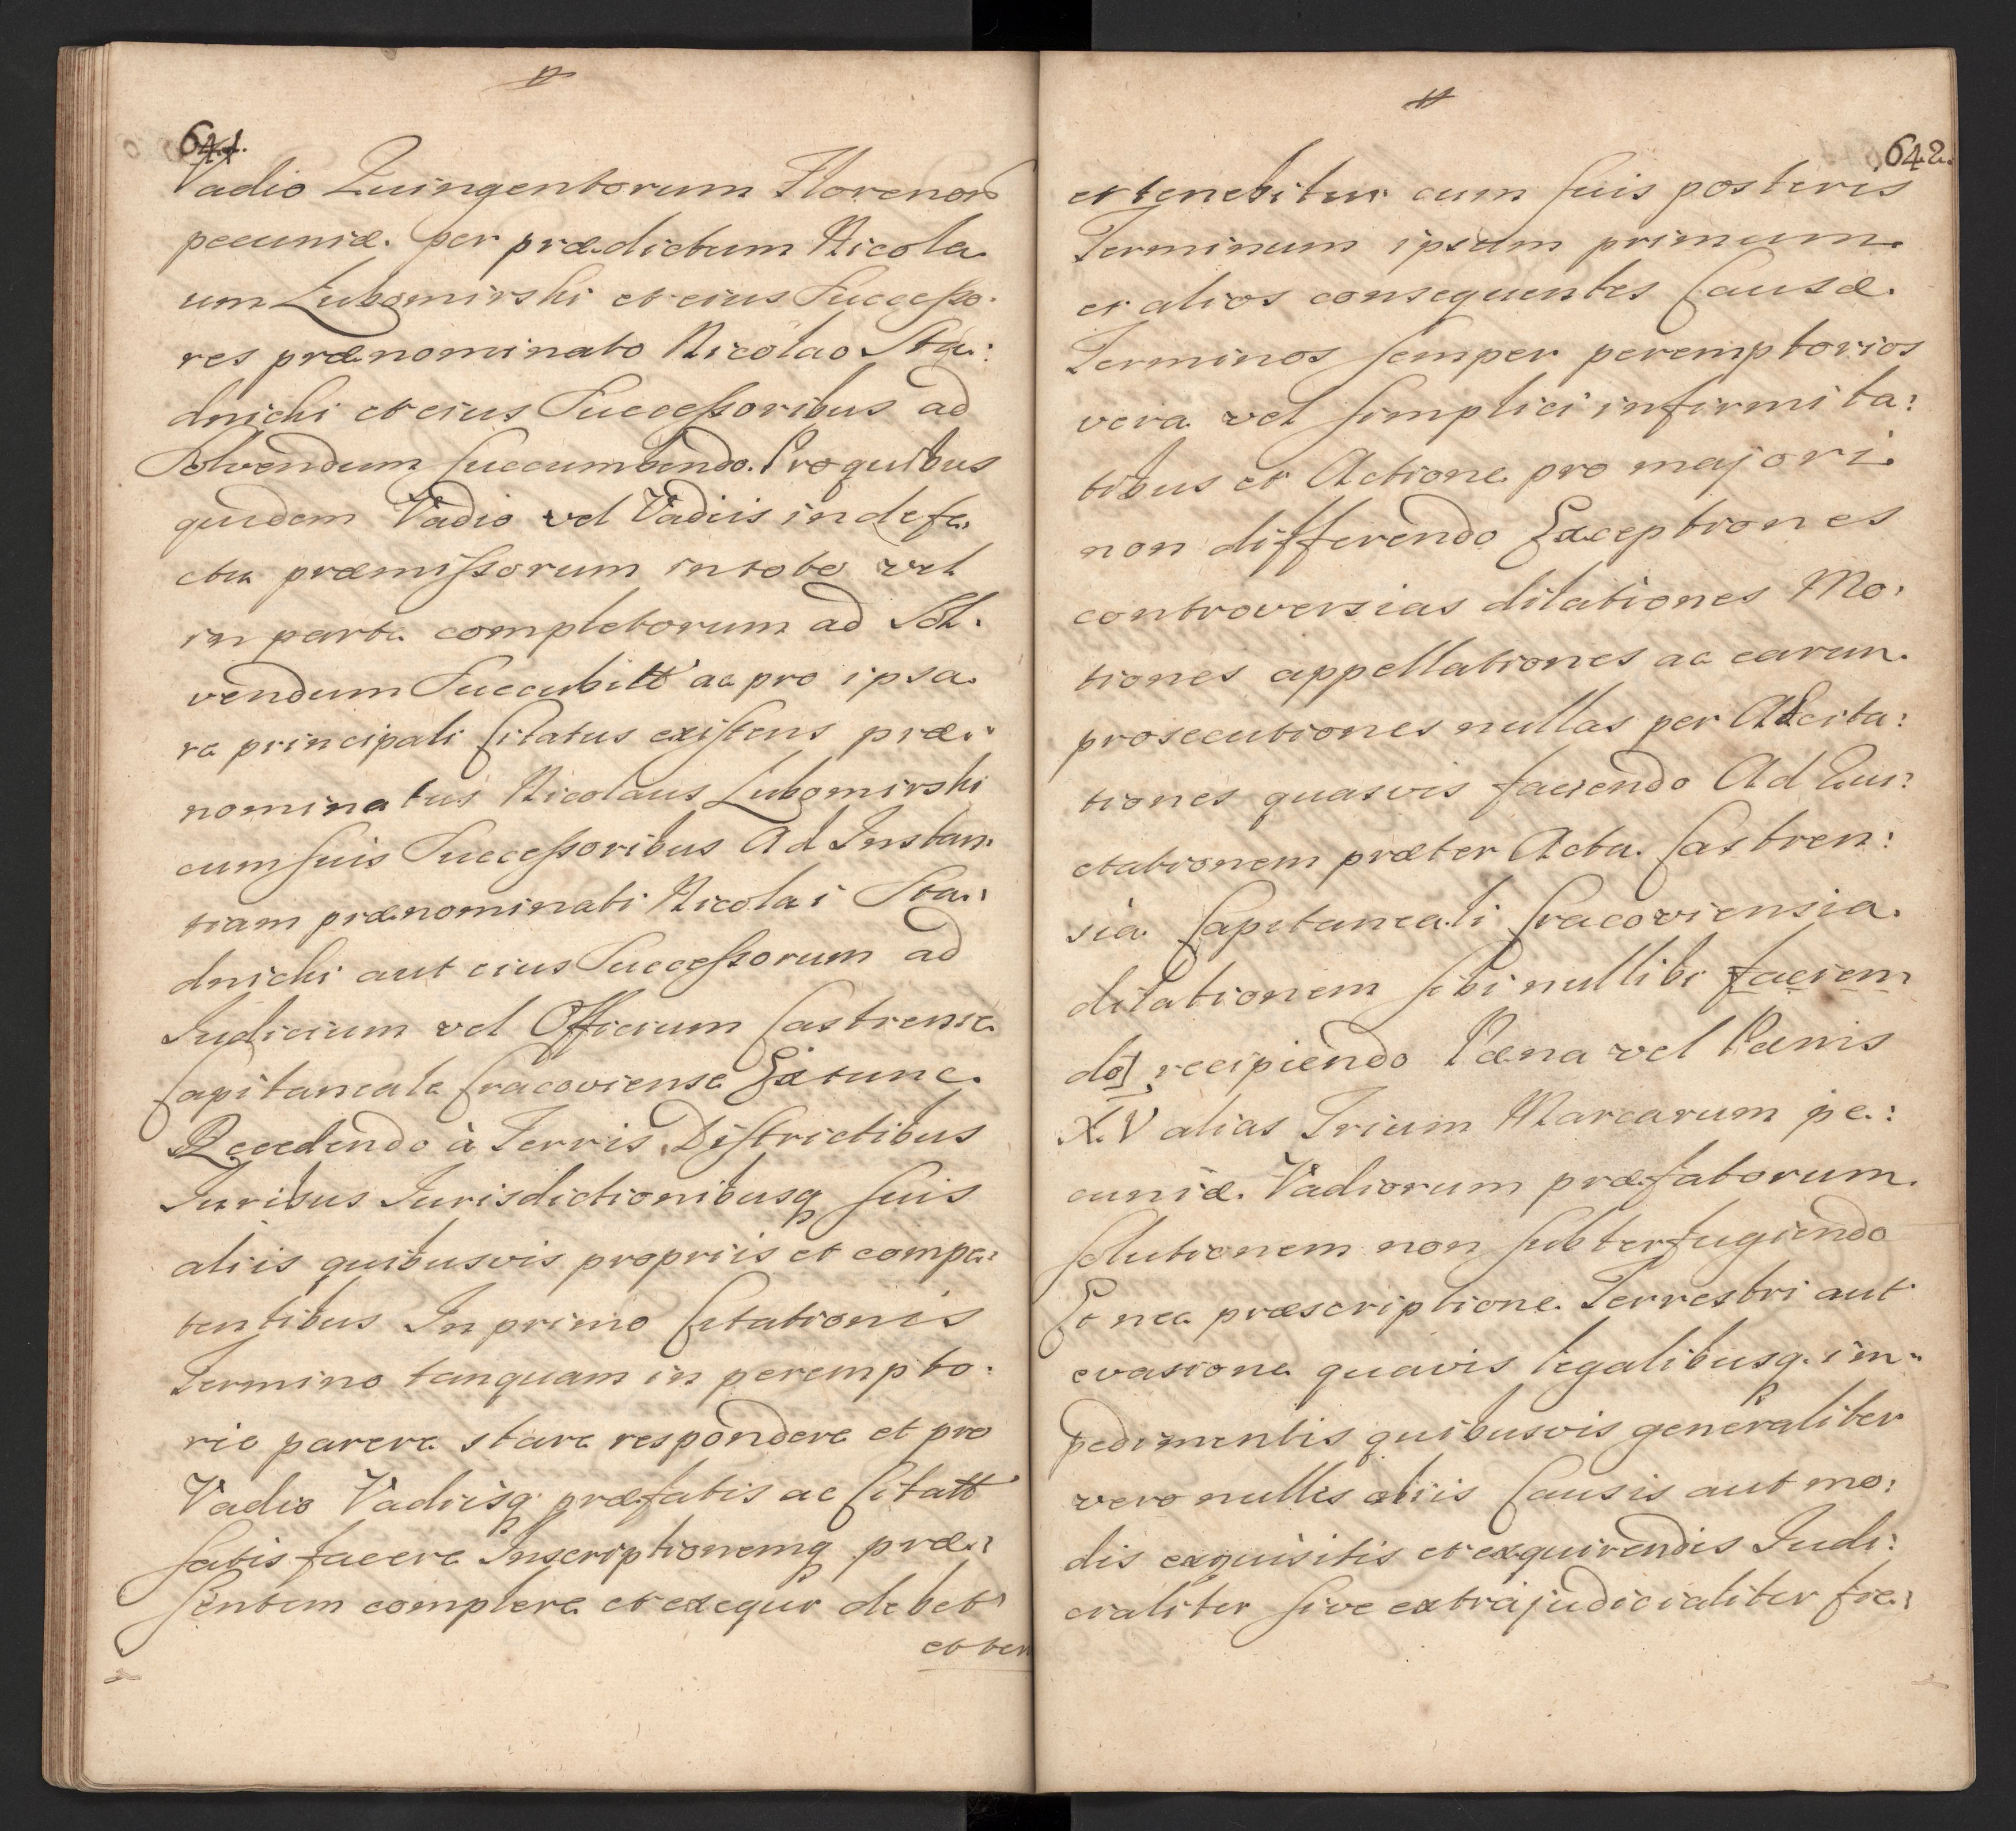 641.
Vadio Quingentorum Florenor
pecuniæ. per prædictum Nicola
um Lubomirski et eius Successo.
res prænominato Nicolao Sta:
dnicki et eius Successoribus ad
Solvendum succumbendo. Pro quibus
quidem Vadio vel Vadiis in defe.
ctu præmissorum in toto vel
in parte completorum ad Sol.
vendum Succubitt ac pro ipsa.
re principali Citatus existens præ:
nominatus Nicolaus Lubomirski
cum suis Successoribus Ad Instan.
tiam prænominati Nicolai Sta:
dnicki aut eius Successorum ad
Iudicium vel Officium Castrense
Capitaneale Cracoviense Extunc.
Recedendo à Terris, Districtibus
Iuribus Iurisdictionibusq suis
aliis quibusvis propriis et compe:
tentibus In primo Citationis
Termino tanquam in perempto:
rio parere stare respondere et pro
Vadio Vadiisq præfatis ac Citatt
satisfacere Inscriptionemq præ:
sentem complere et exequi debet
et ten
642.
et tenebitur cum suis posteris
Terminum ipsum primum.
et alios consequentes Causæ.
Terminos semper peremptorios
vera vel simplici infirmita:
tibus et Actione pro majori
non differendo Exceptiones
controversias dilationes Mo:
tiones appellationes ac earum.
prosecutiones nullas per Adcita:
tiones quasvis faciendo Ad Eui:
ctationem præter Acta Castren:
sia Capitaneali Cracoviensia.
dilationem sibi nullibi facien:
do, recipiendo Pæna vel Pænis
X.V alias Trium Marcarum pe:
cuniæ. Vadiorum præfatorum.
solutionem non subterfugiendo
Et nec præscriptione Terrestri aut
evasione quavis legalibusq. im:
pedimentis quibusvis generaliter
vero nullis aliis Causis aut mo:
dis exquisitis et exquirendis Iudi:
cialiter sive extrajudicialiter fie: